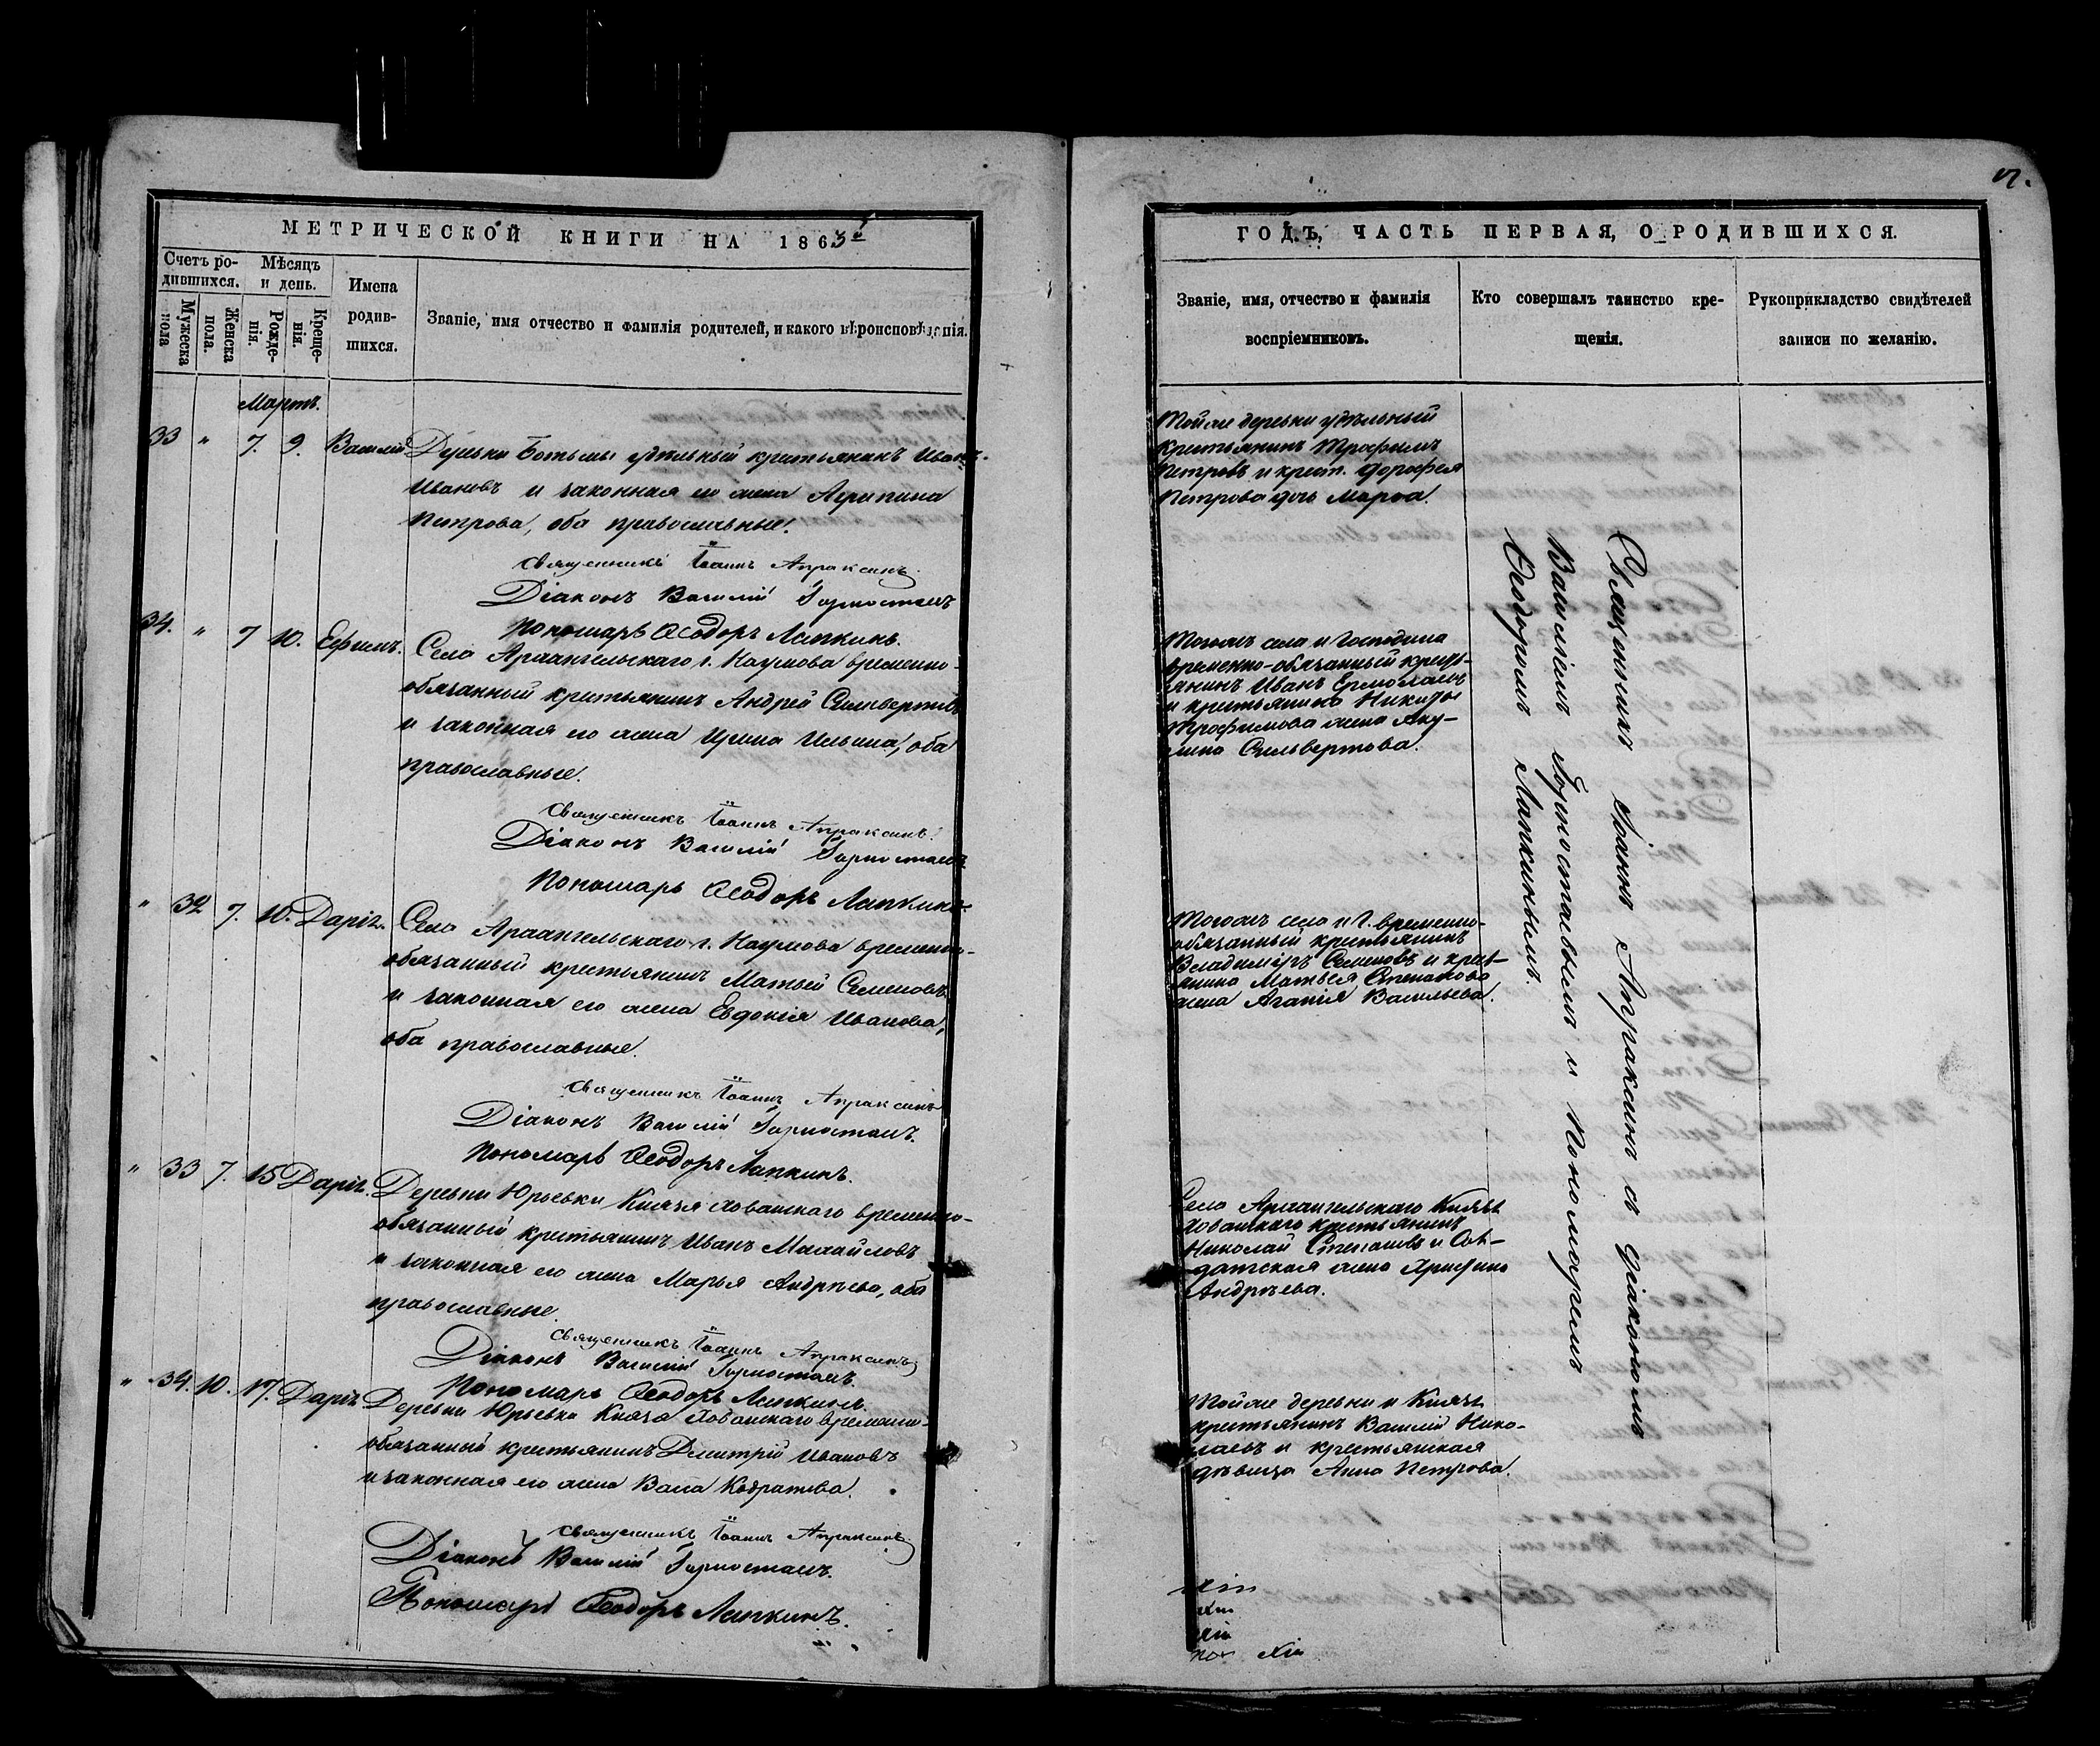 МЕТРИЧЕСКОЙ КНИГИ НА 1863й
Счетъ родившихся.
Мѣсяцъ и день.
Имена родив-
шихся.
Званіе, имя отчество и фамилія родителей, и какого вѣроисповѣданія.
Мужеска пола
Женска пола.
Рожденія.
Крещенія.
Мартъ.
33 " 7. 9. Василій Деревни Ботьмы удѣльный крестьянинъ Иванъ
Ивановъ и законная его жена Агрипина
Петрова, оба православные.
Священникъ Іоаннъ Апраксинъ
Діаконъ Василій Горностаевъ
Пономарь Ѳеодоръ Лапкинъ.
34. " 7 10. Ефимъ. Села Архангельскаго г. Наумова временно-
обязанный крестьянинъ Андрей Сильвертовъ
и законная его жена Ирина Ильина, оба
православные.
Священникъ Іоаннъ Апраксинъ.
Діаконъ Василій Горностаевъ
Пономарь Ѳеодоръ Лапкинъ.
" 32 7. 10. Дарія. Села Архангельскаго г. Наумова временно-
обязанный крестьянинъ Матвей Семеновъ
и законная его жена Евдокія Иванова,
оба православные.
Священникъ Іоаннъ Апраксинъ
Діаконъ Василій Горностаевъ.
Пономарь Ѳеодоръ Лапкинъ.
" 33 7. 15 Дарія. Деревни Юрьевки Князя Хованскаго временно-
обязанный крестьянинъ Иванъ Михайловъ
и законная его жена Марья Андрѣева, оба
православные.
Священникъ Іоаннъ Апраксинъ
Діаконъ Василій Горностаевъ.
Пономарь Ѳеодоръ Лапкинъ.
" 34. 10. 17. Дарія Деревни Юрьевки Князя Хованскаго временно-
обязанный крестьянинъ Дмитрій Ивановъ
и законная его жена Васса
Священникъ Іоаннъ Апраксинъ
Діаконъ Василій Горностаевъ.
Пономарь Ѳеодоръ Лапкинъ.
ГОДЪ, ЧАСТЬ ПЕРВАЯ, О РОДИВШИХСЯ.
Званіе, имя, отчество и фамилія
воспріемниковъ.
Кто совершалъ таинство кре-
щенія.
Рукоприкладство свидѣтелей
записи по желанію.
Тойже деревни удѣльный
крестьянинъ Трофимъ
Петровъ и крест. Дорофея
Петрова дочь Марѳа.
Тогожъ села и Господина
временно-обязанный кресть-
янинъ Иванъ Ермолаевъ
и крестьянина Никиты
Трофимова жена Аку-
лина Сильвертова.
Тогожъ села и Г. временно-
обязанный крестьянинъ
Владиміръ Семеновъ и крест-
янина Матвѣя Степанова
жена Агапія Васильева.
Села Архангельскаго Князя
Хованскаго крестьянинъ
Николай Степановъ и Сол-
датская жена
Андрѣева.
Тойже деревни и Князя
крестьянинъ Василій Нико-
лаевъ и крестьянская
дѣвица Анна Петрова.
Священникъ Іоаннъ Апраксинъ съ діакономъ
Василіемъ Горностаевымъ и Пономаремъ
Ѳеодоромъ Лапкинымъ.